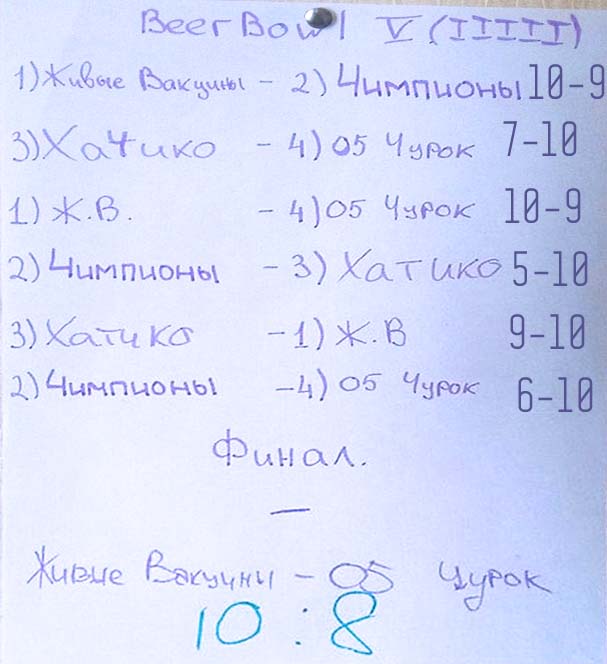 BeerBowl V (IIIII)
1) Живые Вакуины - 2) Чимпионы 10-9
3) Хатико - 4) 05 Чурок 7-10
1) Ж.В. - 4) 05 Чурок 10-9
2) Чимпионы - 3) Хатико 5-10
3) Хатико - 1) Ж.В 9-10
2) Чимпионы - 4) 05 Чурок 6-10
Финал.
—
Живие Вакуины - 05 Чурок
10 : 8